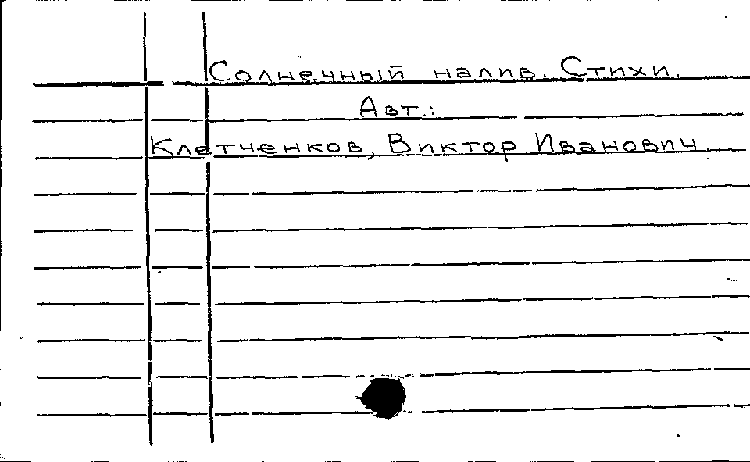 Солнечный налив. Стихи.
Авт.:
Клетченков, Виктор Иванович